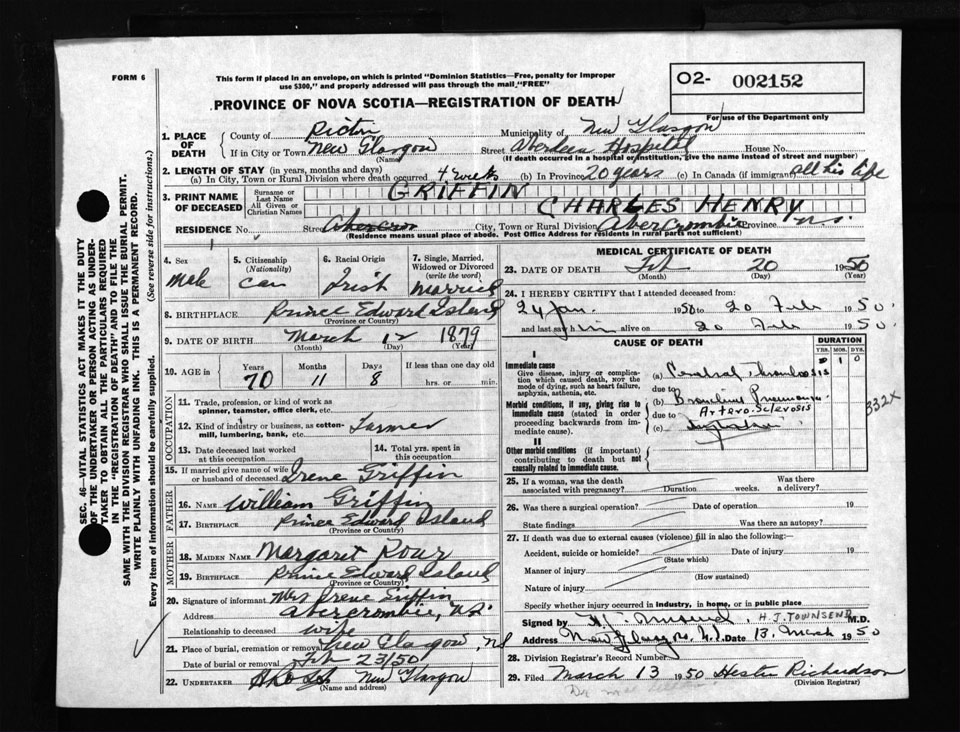 FORM 6
This form if placed in an envelope, on which is printed "Dominion Statistics—Free, penalty for improper
use $300," and properly addressed will pass through the mail "FREE"
O2- 002152
For use of the Department only
PROVINCE OF NOVA SCOTIA—REGISTRATION OF DEATH
1. PLACE OF DEATH County of Pictou Municipality of New Glasgow
If in City or Town New Glasgow (Name) Street Aberdeen Hospital House No.
(If death occurred in a hospital or institution, give the name instead of street and number)
2. LENGTH OF STAY (in years, months and days)
(a) In City, Town or Rural Division where death occurred 4 weeks (b) In Province 20 years (c) In Canada (if immigrant) all his life
3. PRINT NAME OF DECEASED Surname or Last Name GRIFFIN
All Given or Christian Names CHARLES HENRY
RESIDENCE No. Street City, Town or Rural Division Abercrombie Province N.S.
(Residence means usual place of abode. Post Office Address for residents in rural parts not sufficient)
4. Sex male
5. Citizenship (Nationality) Can
6. Racial Origin Irish
7. Single, Married, Widowed or Divorced (write the word) married
8. BIRTHPLACE Prince Edward Island
(Province or Country)
9. DATE OF BIRTH March 12 1879
(Month) (Day) (Year)
10. AGE in Years 70 Months 11 Days 8 If less than one day old
hrs. or min.
OCCUPATION
11. Trade, profession, or kind of work as spinner, teamster, office clerk, etc.
12. Kind of industry or business, as cotton-mill, lumbering, bank, etc. Farmer
13. Date deceased last worked at this occupation
14. Total yrs. spent in this occupation
15. If married give name of wife or husband of deceased Irene Griffin
FATHER
16. NAME William Griffin
17. BIRTHPLACE Prince Edward Island
(Province or Country)
MOTHER
18. MAIDEN NAME Margaret
19. BIRTHPLACE Prince Edward Island
(Province or Country)
20. Signature of informant Mrs Irene Griffin
Address Abercrombie, N.S.
Relationship to deceased wife
21. Place of burial, cremation or removal New Glasgow, NS
Date of burial or removal Feb 23/50
22. UNDERTAKER New Glasgow
(Name and address)
MEDICAL CERTIFICATE OF DEATH
23. DATE OF DEATH Feb 20 1950
(Month) (Day) (Year)
24. I HEREBY CERTIFY that I attended deceased from:
24 Jan. 1950 to 20 Feb 1950.
and last saw him alive on 20 Feb 1950.
CAUSE OF DEATH
DURATION
YRS. MOS. DYS.
0 1 0
I
Immediate cause
Give disease, injury or complication which caused death, NOT the mode of dying, such as heart failure, asphyxia, asthenia, etc.
(a) Cerebral Thrombosis
due to
Morbid conditions, if any, giving rise to immediate cause (stated in order proceeding backwards from immediate cause).
(b) Bronchial Pneumonia
due to Artero-Sclerosis
(c)
332X
II
Other morbid conditions (if important) contributing to death but not causally related to immediate cause.
25. If a woman, was the death associated with pregnancy? Duration weeks. Was there a delivery?
26. Was there a surgical operation? Date of operation 19
State findings Was there an autopsy?
27. If death was due to external causes (violence) fill in also the following:—
Accident, suicide or homicide? Date of injury 19
(State which)
Manner of injury
(How sustained)
Nature of injury
Specify whether injury occurred in industry, in home, or in public place
Signed by H. J. Townsend. H.J. TOWNSEND M.D.
Address New Glasgow, N.S. Date 13 March 1950
28. Division Registrar's Record Number
29. Filed March 13 1950 Hester Richardson
(Division Registrar)
SEC. 46—VITAL STATISTICS ACT MAKES IT THE DUTY
OF THE UNDERTAKER OR PERSON ACTING AS UNDER-
TAKER TO OBTAIN ALL THE PARTICULARS REQUIRED
IN THE "REGISTRATION OF DEATH" AND TO FILE THE
SAME WITH THE DIVISION REGISTRAR WHO SHALL ISSUE THE BURIAL PERMIT.
WRITE PLAINLY WITH UNFADING INK. THIS IS A PERMANENT RECORD.
Every item of information should be carefully supplied. (See reverse side for instructions.)